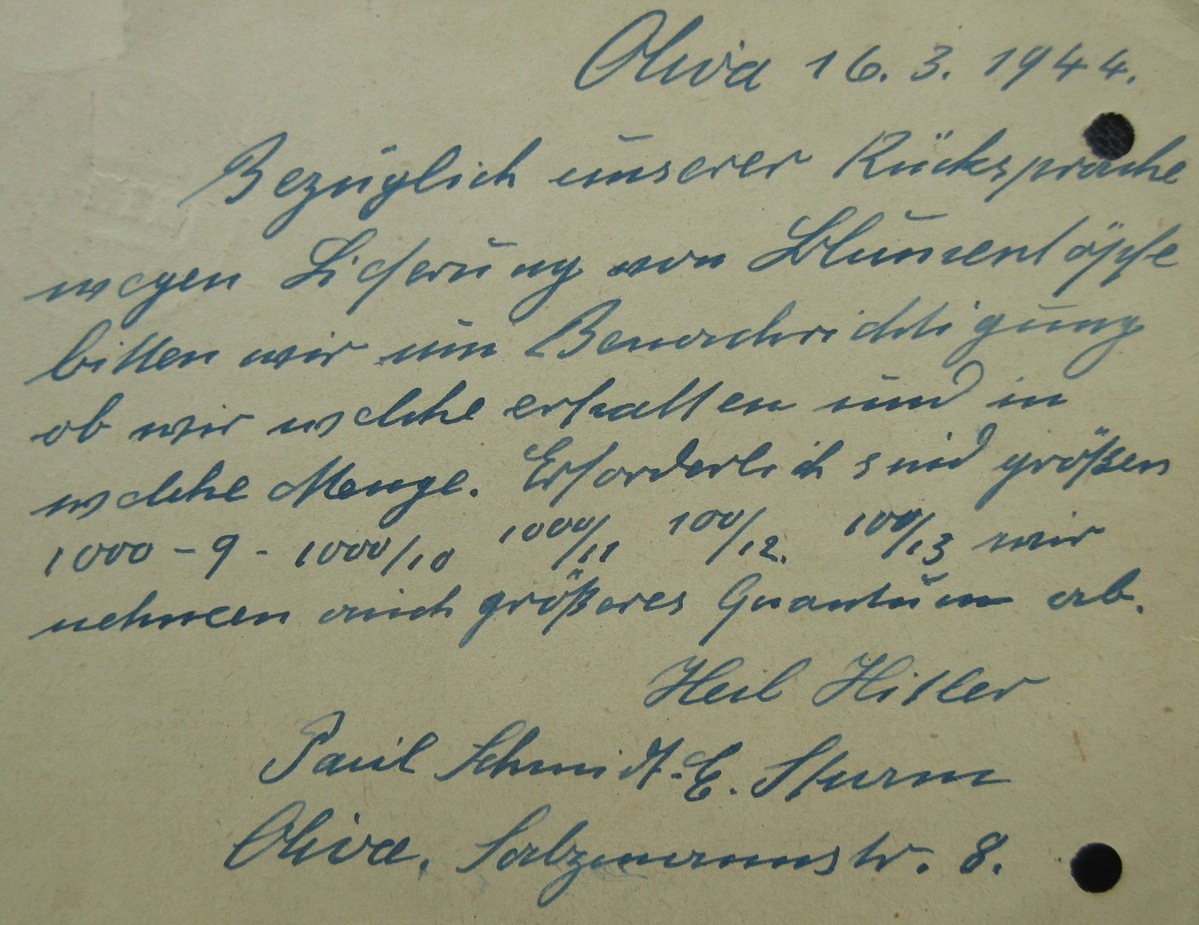 Oliva 16. 3. 1944.
Bezüglich unserer Rücksprache
wegen Lieferung von Blumentöpfe
bitten wir um Benachrichtigung
ob wir welche erhalten und in
welche Menge. Erforderlich sind größen
1000 - 9 - 1000/10 1000/11 100/12. 100/13 wir
nehmen auch größeres Quantum ab.
Heil Hitler
Paul Schmidt - E. Sturm
Oliva, Salzmannstr. 8.